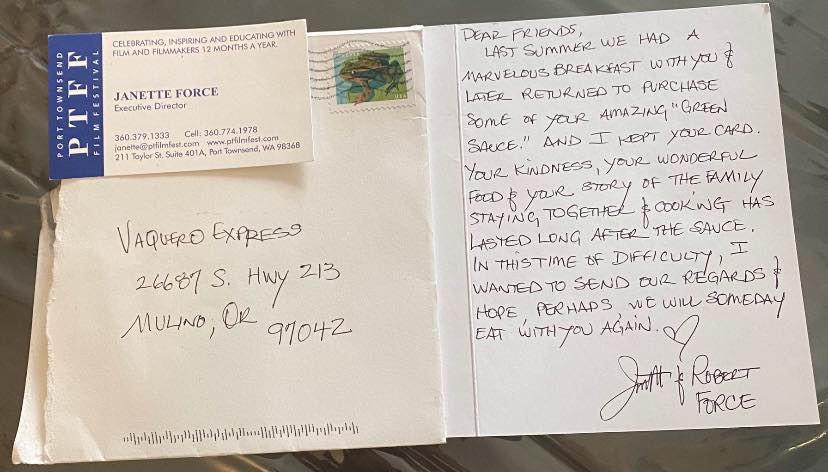 PORT TOWNSEND
PTFF
FILM FESTIVAL
CELEBRATING, INSPIRING AND EDUCATING WITH
FILM AND FILMMAKERS 12 MONTHS A YEAR.
JANETTE FORCE
Executive Director
360.379.1333 Cell: 360.774.1978
janette@ptfilmfest.com www.ptfilmfest.com
211 Taylor St. Suite 401A, Port Townsend, WA 98368
USA
VAQUERO EXPRESS
26687 S. HWY 213
MULINO, OR 97042
DEAR FRIENDS,
LAST SUMMER WE HAD A
MARVELOUS BREAKFAST WITH YOU &
LATER RETURNED TO PURCHASE
SOME OF YOUR AMAZING "GREEN
SAUCE." AND I KEPT YOUR CARD.
YOUR KINDNESS, YOUR WONDERFUL
FOOD & YOUR STORY OF THE FAMILY
STAYING TOGETHER & COOKING HAS
LASTED LONG AFTER THE SAUCE.
IN THIS TIME OF DIFFICULTY, I
WANTED TO SEND OUR REGARDS &
HOPE, PERHAPS, WE WILL SOMEDAY
EAT WITH YOU AGAIN.
& ROBERT
FORCE